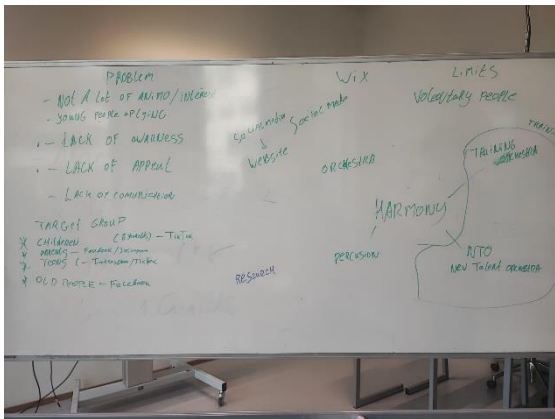 PROBLEM
- NOT A LOT OF ANIMO/INTERES
- YOUNG PEOPLE APLYING
- LACK OF AWARNESS
- LACK OF APPEAL
- LACK OF COMUNICATION
TARGET GROUP
CHILDEREN - TikTok
- Facebook/Instagram
TEENS - Instagram/TikTok
OLD PEOPLE - Facebook
Social media
WEBSITE
RESEARCH
WIX
ORCHESTRA
HARMONY
PERCUSION
LIMITS
VOLUNTARY PEOPLE
TRAINING
ORCHESTRA
NTO
New Talent ORCHESTRA